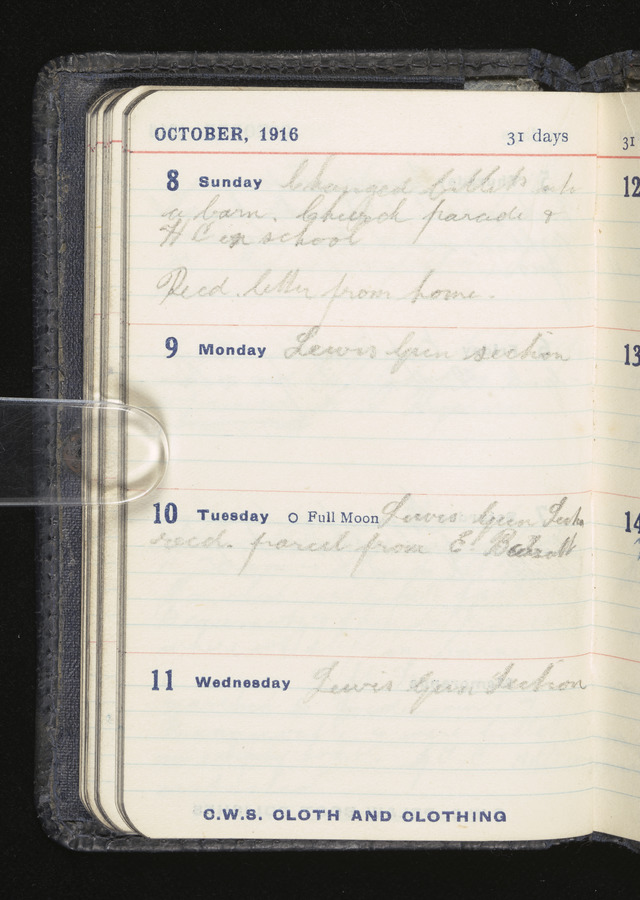 OCTOBER, 1916 31 days
8 Sunday Changed billets into
a barn. Church parade &
H C in school
Recd. letter from home.
9 Monday Lewis Gun section
10 Tuesday O Full Moon Lewis Gun Sectn
recd. parcel from E.
11 Wednesday Lewis Gun Section
C.W.S. CLOTH AND CLOTHING
31
12
13
14